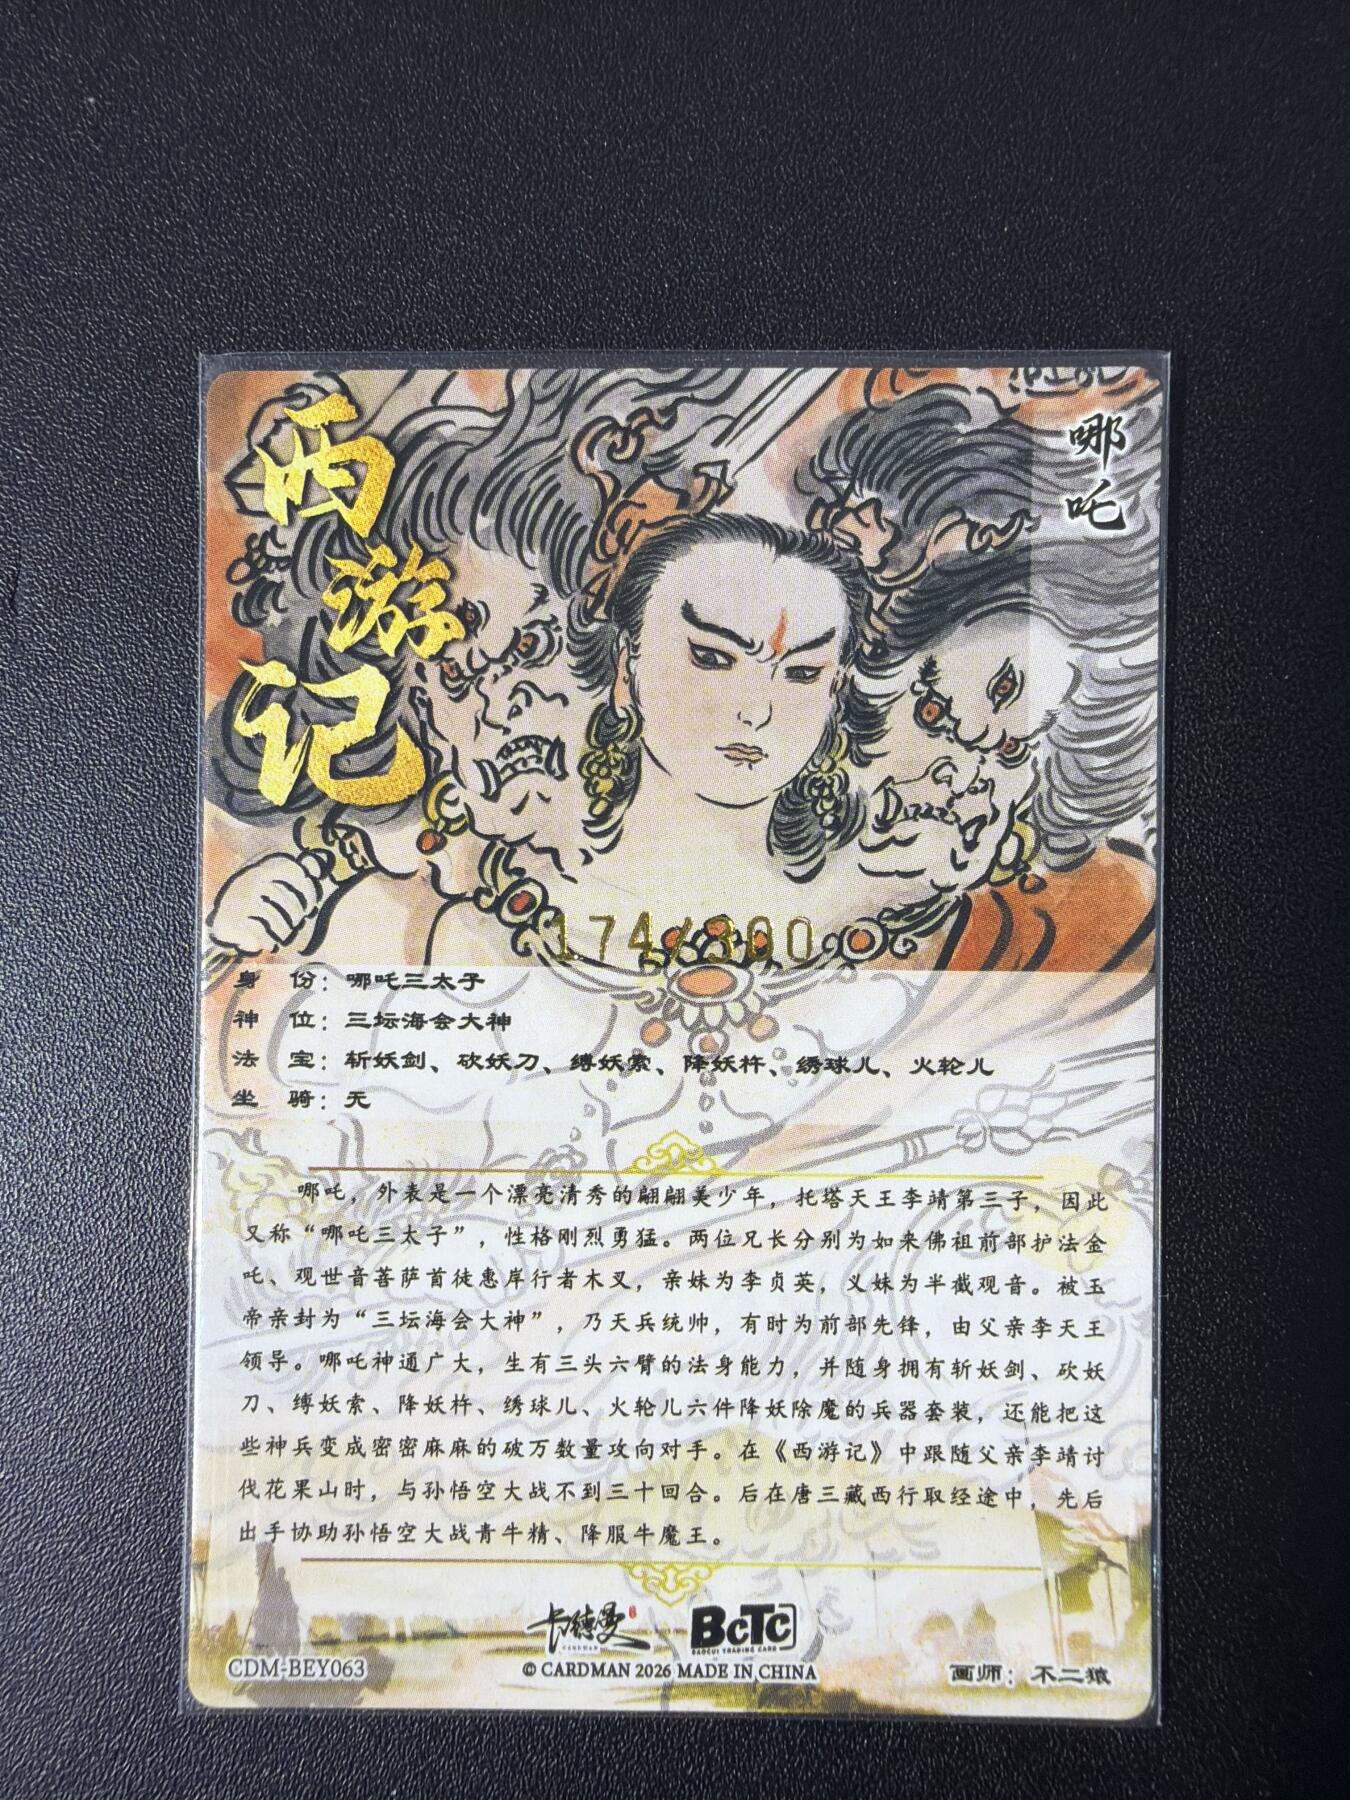 西游记
哪吒
174/300
身 份：哪吒三太子
神 位：三坛海会大神
法 宝：斩妖剑、砍妖刀、缚妖索、降妖杵、绣球儿、火轮儿
坐 骑：无
哪吒，外表是一个漂亮清秀的翩翩美少年，托塔天王李靖第三子，因此
又称“哪吒三太子”，性格刚烈勇猛。两位兄长分别为如来佛祖前部护法金
吒、观世音菩萨首徒惠岸行者木叉，亲妹为李贞英，义妹为半截观音。被玉
帝亲封为“三坛海会大神”，乃天兵统帅，有时为前部先锋，由父亲李天王
领导。哪吒神通广大，生有三头六臂的法身能力，并随身拥有斩妖剑、砍妖
刀、缚妖索、降妖杵、绣球儿、火轮儿六件降妖除魔的兵器套装，还能把这
些神兵变成密密麻麻的破万数量攻向对手。在《西游记》中跟随父亲李靖讨
伐花果山时，与孙悟空大战不到三十回合。后在唐三藏西行取经途中，先后
出手协助孙悟空大战青牛精、降服牛魔王。
卡德曼
CARDMAN
BCTC
BAOCUI TRADING CARD
CDM-BEY063
© CARDMAN 2026 MADE IN CHINA
画师：不二猿